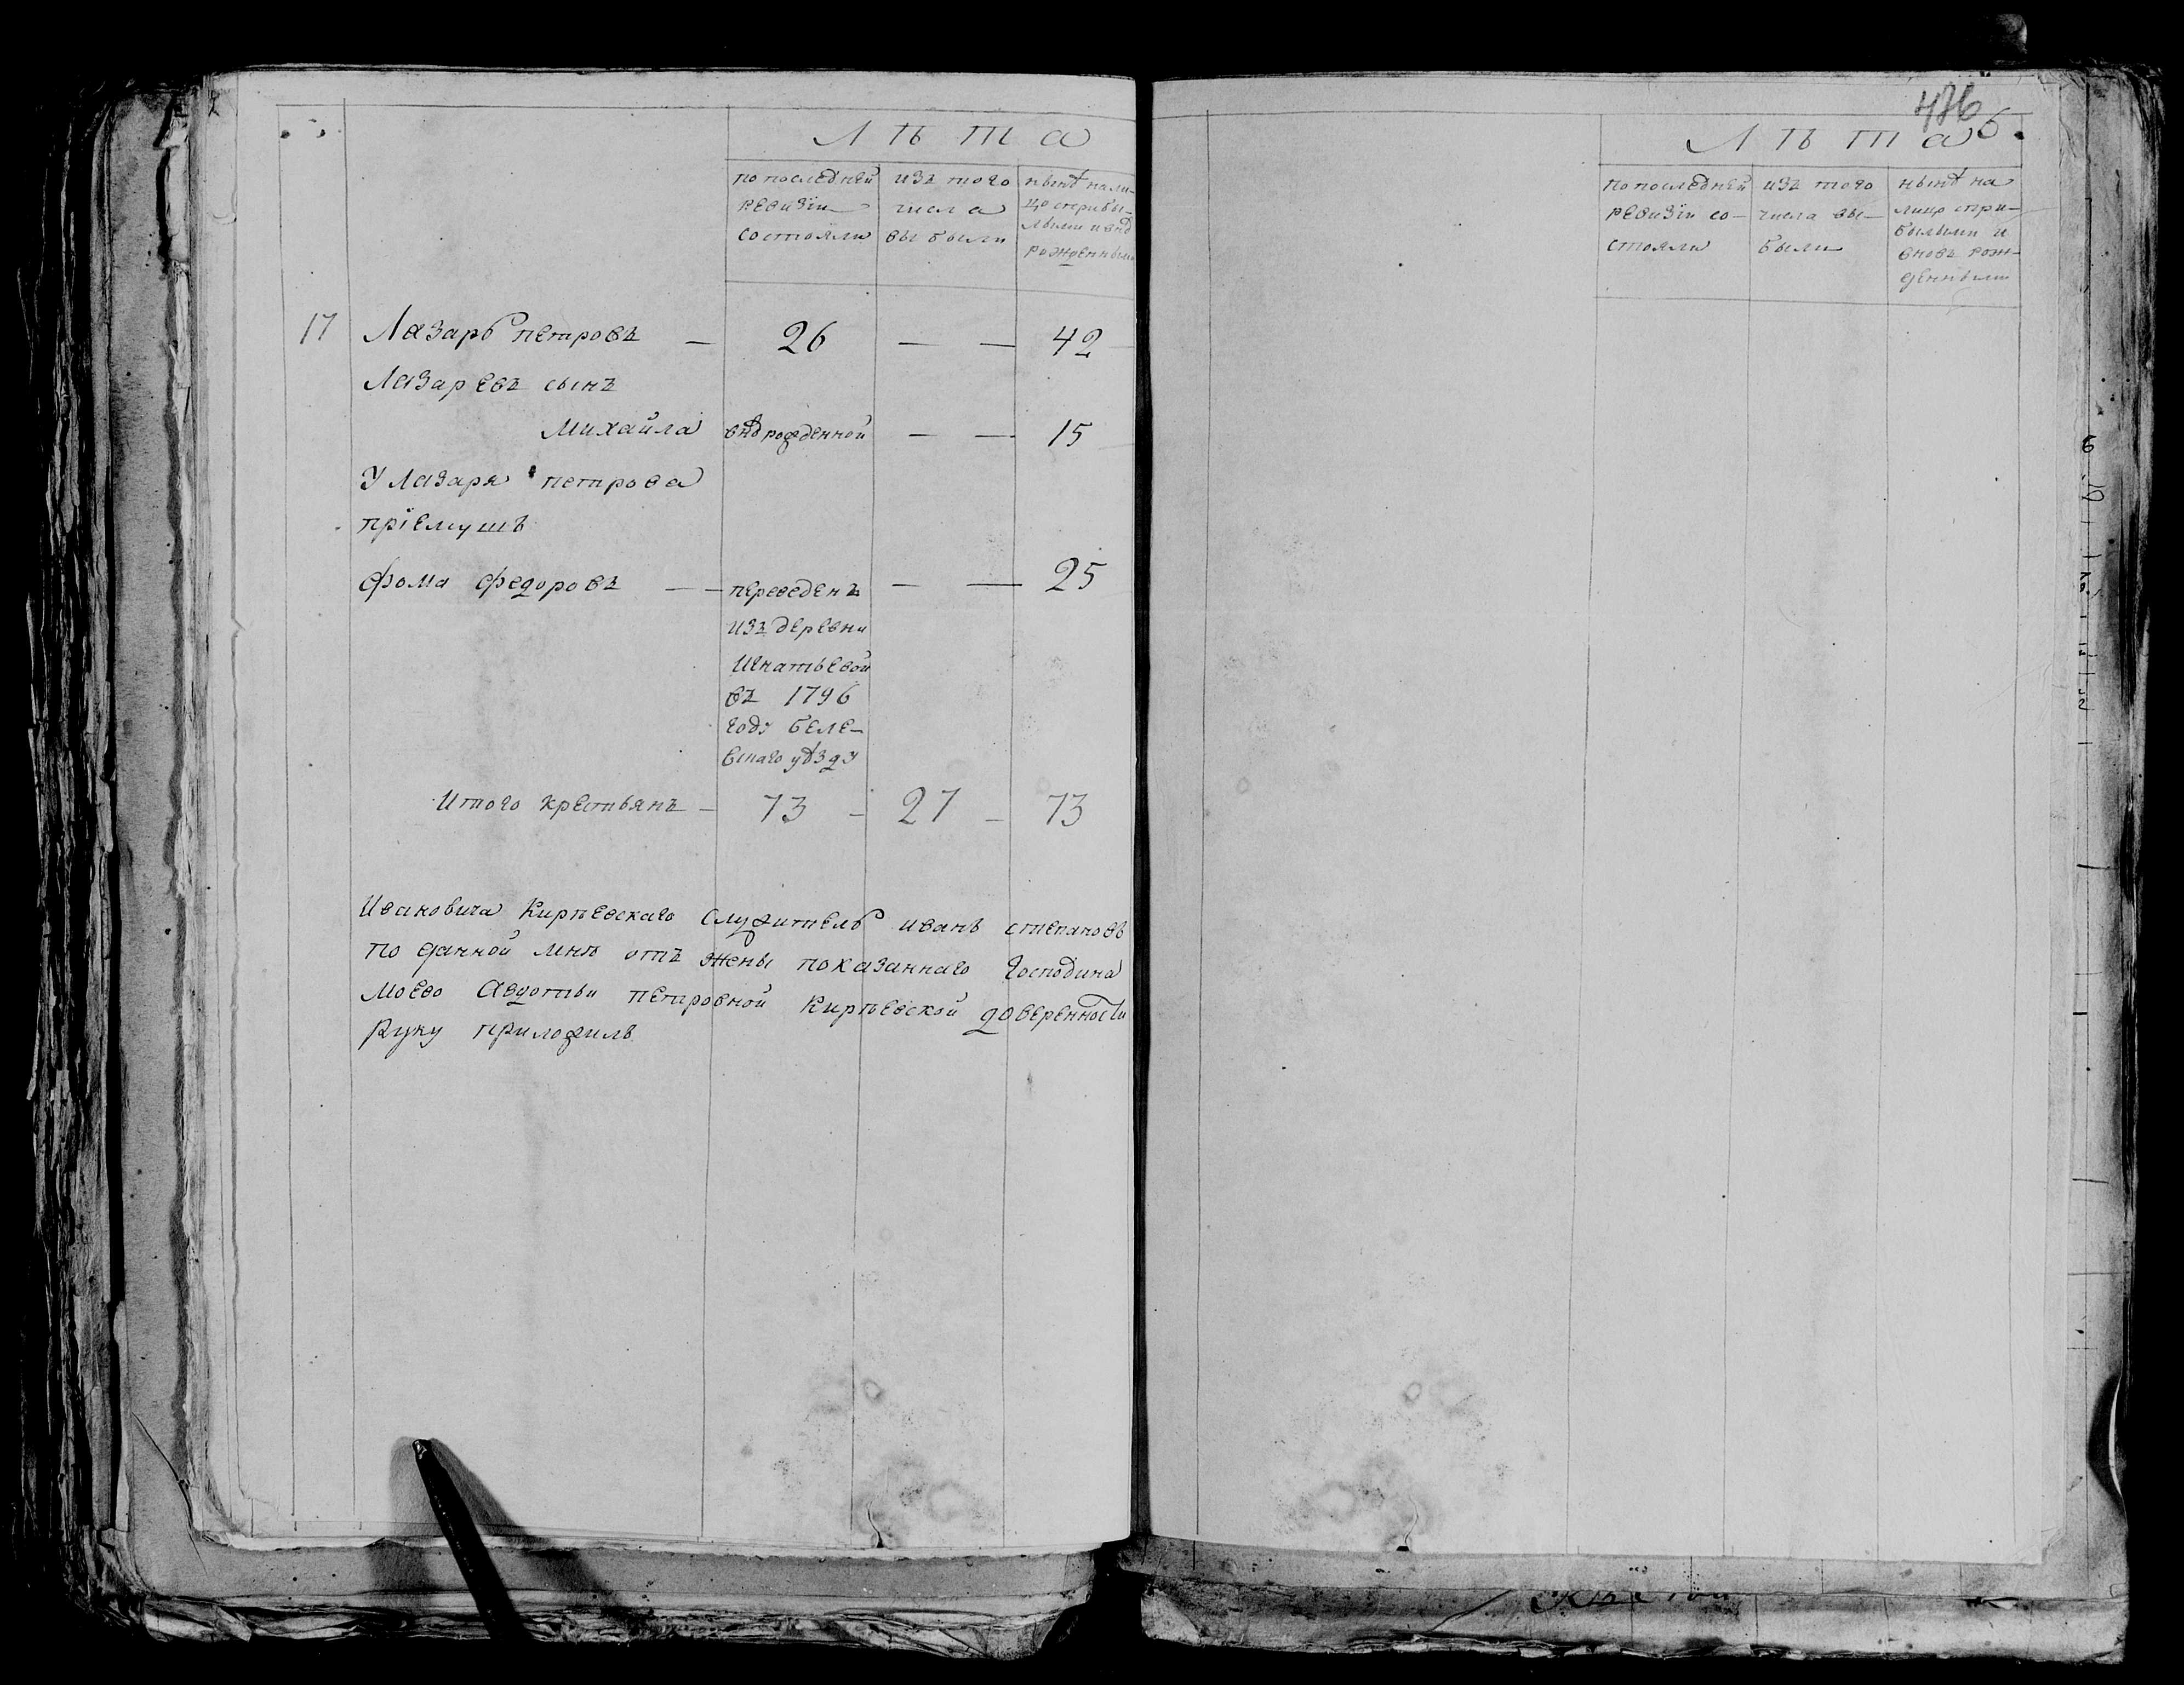 Лѣта
по последней
ревизiи
состояли
изъ того
числа
выбыли
нынѣ нали-
цо сприбы-
лыми и внѡ
рожденными
17 Лазарь петровъ — 26 — — 42
Лазаревъ сынъ
Михайла внѡ рожденной — — 15
У Лазаря петрова
прiемушъ
Фома Федоровъ — — переведенъ — — 25
изъ деревни
Игнатьевой
въ 1796
году беле-
вскаго уѣзду
Итого крестьянъ — 73 — 27 — 73
Ивановича Кирѣевскаго служитель иванъ степановъ
по данной мнѣ отъ жены показаннаго Господина
моево Авдотьи петровной Кирѣевской доверенности
руку приложилъ
476
6.
Лѣта
по последней
ревизiи со-
стояли
изъ того
числа вы-
были
нынѣ на
лицо спри-
былыми и
вновъ рож-
денными